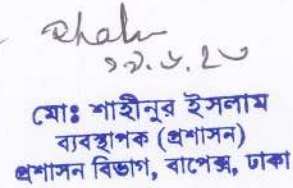 ১৯.৬.২৩
মোঃ শাহীনুর ইসলাম
ব্যবস্থাপক (প্রশাসন)
প্রশাসন বিভাগ, বাপেক্স, ঢাকা